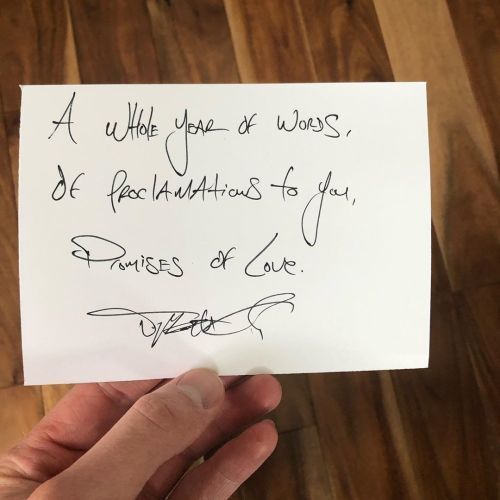 A WHOLE YEAR OF WORDS,
OF PROCLAMATIONS to you,
PROMISES OF LOVE.